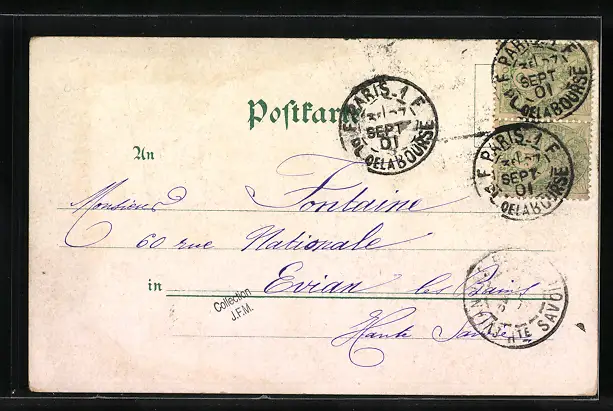 Postkarte
PARIS-1 F
SEPT
01
PL. DE LA BOURSE
PARIS-1 F
SEPT
01
PL. DE LA BOURSE
PARIS-1 F
SEPT
01
PL. DE LA BOURSE
An
Monsieur Fontaine
60 rue Nationale
in Evian les Bains
Haute Savoie
Collection
J.F.M.
EVIAN
HTE SAVOIE